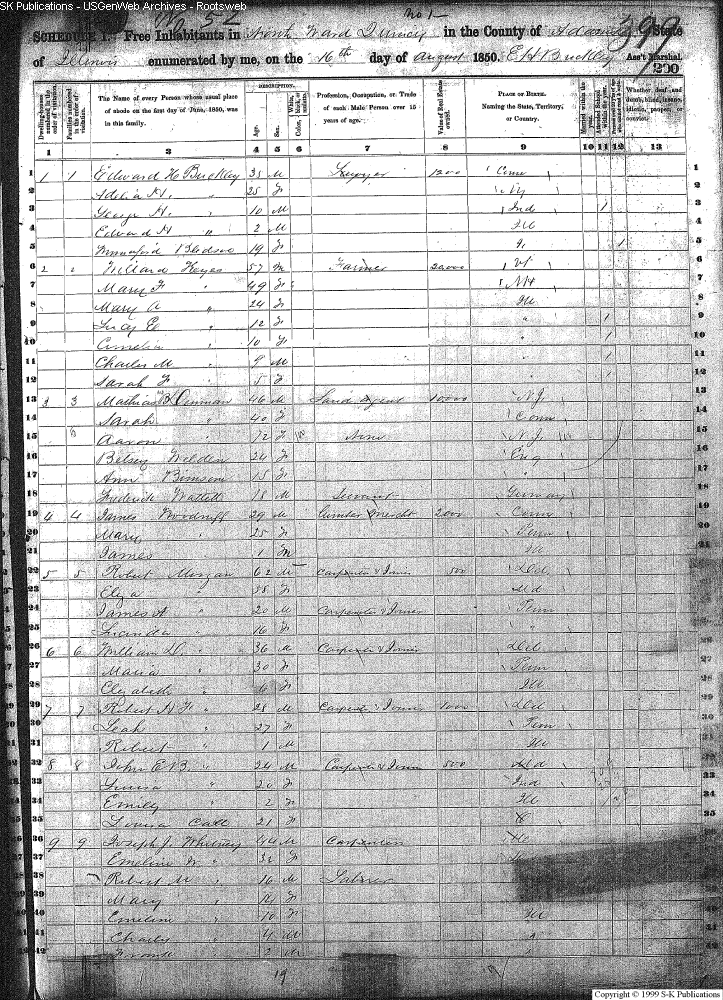 SK Publications - USGenWeb Archives - Rootsweb
No 52 No 1
SCHEDULE I. Free Inhabitants in North Ward Quincy in the County of Adams State 399
of Illinois enumerated by me, on the 16th day of August 1850. E H Buckley Ass't Marshal. 200
Dwelling-houses numbered in the order of visitation. Families numbered in the order of visitation. The Name of every Person whose usual place of abode on the first day of June, 1850, was in this family. DESCRIPTION. Age. Sex. Color, White, black, or mulatto. Profession, Occupation, or Trade of each Male Person over 15 years of age. Value of Real Estate owned. PLACE OF BIRTH. Naming the State, Territory, or Country. Married within the year. Attended School within the year. Whether deaf and dumb, blind, insane, idiotic, pauper, or convict.
1 2 3 4 5 6 7 8 9 10 11 12 13
1 1 1 Edward H Buckley 35 M Lawyer 1200 Conn 1
2 Adelia H. " 25 F NY 2
3 George H. " 10 M Ind 1 3
4 Edward H " 2 M Ill 4
5 Bledsoe 19 F 1 5
6 2 2 Willard Keyes 57 M Farmer 20,000 Vt 6
7 Mary F " 49 F NH 7
8 Mary A " 24 F Ill 8
9 Lucy E " 12 F " 1 9
10 Cornelia " 10 F " 1 10
11 Charles M " 9 M " 1 11
12 Sarah F " 5 F " 1 12
13 3 3 Mathias B Denman 46 M Land Agent 10,000 N.J. 13
14 Sarah " 40 F Conn 14
15 Aaron " 72 None N.J. 15
16 Betsey Wilden 24 F Eng 16
17 Ann 15 F " 17
18 Frederick 18 M Servant Germany 18
19 4 4 James Woodruff 29 M Lumber Mercht 2000 19
20 Mary " 25 F Penn 20
21 James " 1 M Ill 21
22 5 5 Robert Morgan 62 M Carpenter & Joiner 500 Del 22
23 Eliza " 38 F Md 23
24 James A " 20 M Carpenter & Joiner Penn 24
25 " 16 F " 25
26 6 6 William D. " 36 M Carpenter & Joiner Del 26
27 Maria " 30 F Penn 27
28 Elizabeth " 6 F Ill 28
29 7 7 Robert H F " 28 M Carpenter & Joiner 1000 Del 29
30 Leah " 27 F Penn 30
31 Robert " 1 M Ill 31
32 8 8 John E B. " 24 M Carpenter & Joiner 500 Md 32
33 Louisa " 20 F Ind 33
34 Emily " 2 F Ill 34
35 Louisa Catt 21 F 35
36 9 9 Joseph J Whitney 44 M Carpenter 36
37 Emeline " 38 F 37
38 Robert M " 16 M Laborer 38
39 Mary " 14 F 39
40 Emeline " 10 F Ill 40
41 Charles " 4 M " 41
42 " 2 M " 42
19
Copyright © 1999 S-K Publications